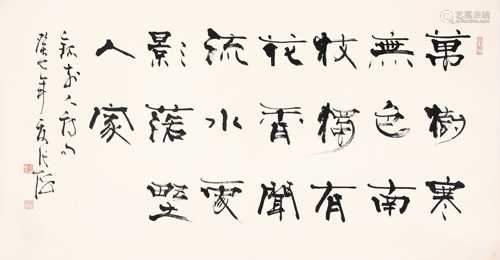 萬樹寒
無色南
枝獨有
花香聞
流水處
影落野
人家
録前人詩句